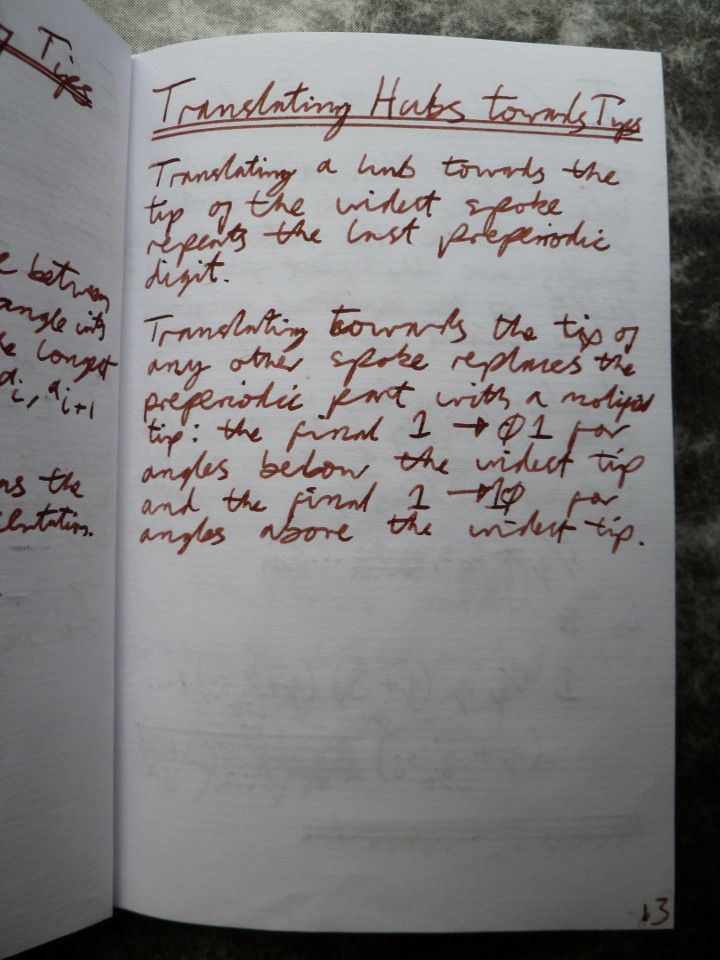 Tips
e between
angle into
e longest
di, ai+1
ns the
Translating Hubs towards Tips
Translating a hub towards the
tip of the widest spoke
repeats the last preperiodic
digit.
Translating towards the tip of
any other spoke replaces the
preperiodic part with a modified
tip: the final 1 → 01 for
angles below the widest tip
and the final 1 → 10 for
angles above the widest tip.
13